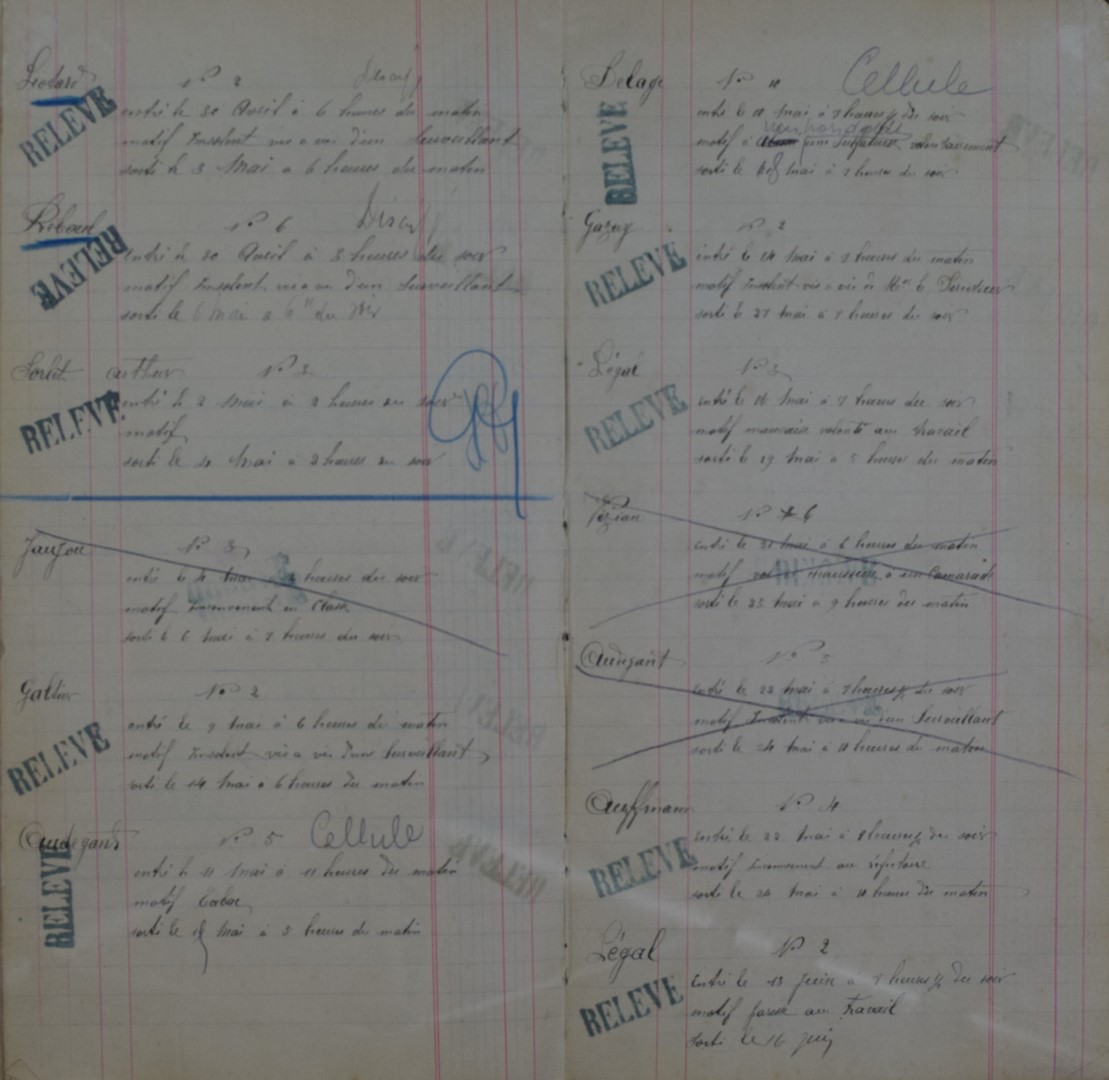 N° 2
RELEVE
entré le 30 Avril à 6 heures du matin
motif Insolent vis a vis d'un Surveillant
sorti le 3 Mai a 6 heures du matin
N° 6
RELEVE
entré le 30 Avril à 3 heures du soir
motif Insolent vis a vis d'un Surveillant
sorti le 6 Mai a 6 h du soir
Arthur N° 3
RELEVE
entré le 2 Mai à 2 heures du soir
motif
sorti le 4 Mai à 2 heures du soir
N° 3
entré le 4 Mai heures du soir
motif en Classe
sorti le 6 Mai à 7 heures du soir
Galtier N° 2
RELEVE
entré le 9 Mai à 6 heures du matin
motif Insolent vis a vis d'un Surveillant
sorti le 14 Mai à 6 heures du matin
Audigant N° 5 Cellule
RELEVE
entré le 11 Mai à 11 heures du matin
motif Tabac
sorti le 18 Mai à 5 heures du matin
Delage N° Cellule
RELEVE
entré le 11 Mai à 7 heures ½ du soir
motif à volontairement
sorti le 18 Mai à 7 heures du soir
Gazay N° 2
RELEVE
entré le 14 Mai à 7 heures du matin
motif Insolent vis à vis de Mr le
sorti le 27 Mai à 7 heures du soir
Légal N° 3
RELEVE
entré le 16 Mai à 7 heures du soir
motif mauvaise volonté au travail
sorti le 19 Mai à 5 heures du matin
Vézian N° 6
RELEVE
entré le 21 Mai à 6 heures du matin
motif à un Camarade
sorti le 23 Mai à 9 heures du matin
Audigant N° 3
entré le 22 Mai à 7 heures ½ du soir
motif Insolent vis a vis d'un Surveillant
sorti le 24 Mai à 10 heures du matin
Auffmann N° 4
RELEVE
entré le 22 Mai à 7 heures ½ du soir
motif au réfectoire
sorti le 24 Mai à 10 heures du matin
Légal N° 2
RELEVE
entré le 13 Juin à 7 heures ½ du soir
motif au Travail
sorti le 16 Juin